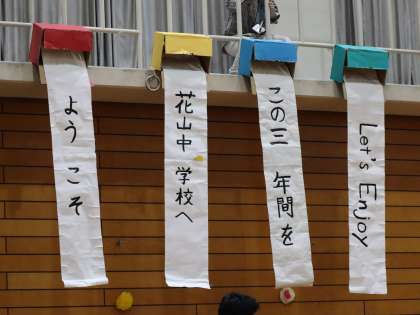 ようこそ
花山中学校へ
この三年間を
Let's Enjoy